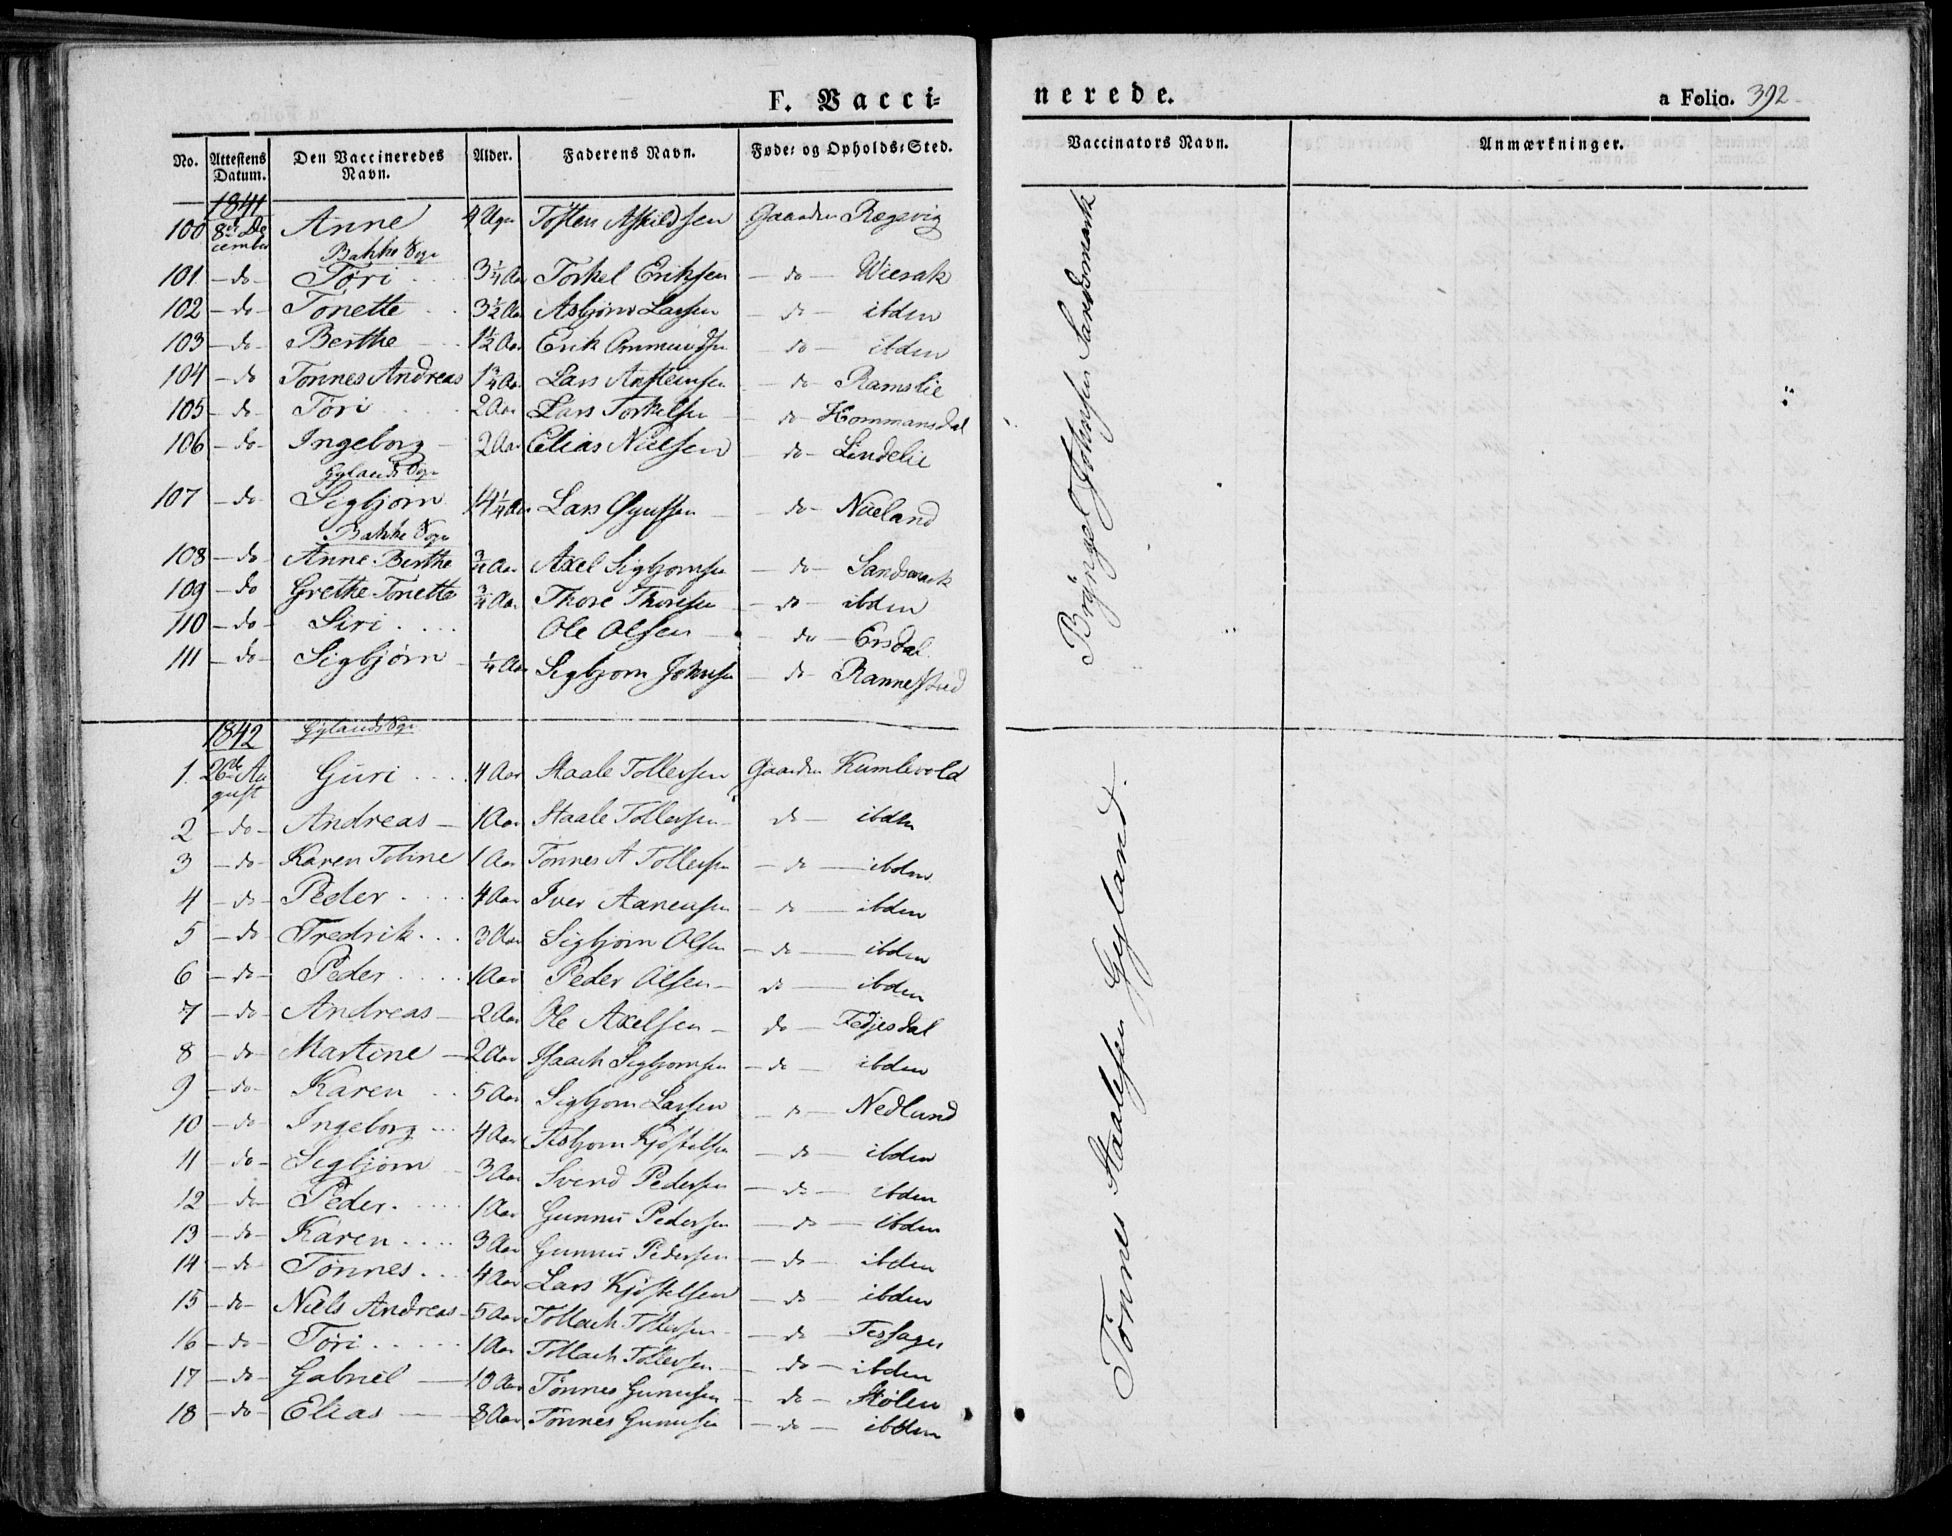 F. Vacci=
nerede.
a Folio. 392
No. Attestens Datum. Den Vaccineredes Navn. Alder. Faderens Navn. Føde= og Opholds=Sted. Vaccinators Navn. Anmærkninger.
1841
100 8de December Anne 4 Uger Tosten Askildsen Gaarden Regevig
Bakke Sogn
101 – do – Tori 3 1/4 Aar Torkel Eriksen – do – Wiesak
102 – do – Tonette 3 1/2 Aar Asbjørn Larsen – do – ibden
103 – do – Berthe 1 1/2 Aar Erik Ommundsen – do – ibden
104 – do Tonnes Andreas 1 3/4 Aar Lars Ansteinsen – do – Ramslie
105 – do – Tori 2 Aar Lars Torkelsen – do – Hommansdal
106 – do – Ingeborg – 2 Aar Elias Nielsen – do – Lindelie
Gylands Sogn
107 – do – Sigbjørn 14 1/4 Aar Lars – do – Nueland
Bakke Sogn
108 – do Anne Berthe 3/4 Aar Axel Sigbjornsen – do – Sandsmark
109 – do Grethe Tonette 3/4 Aar Thore Thoresen – do – ibden
110 – do – Siri Ole Olsen – do – Ersdal
111 – do – Sigbjørn 1/4 Aar Sigbjorn Johnsen – do – Rannestad
Brynjel Johnsen Sandsmark
1842 Gylands Sogn
1. 26de August Guri 4 Aar Staale Tollevsen Gaarden Kumlevold
2 – do – Andreas – 1 Aar Staale Tollevsen – do – ibden
3 – do – Karen Tobine 1 Aar Tonnes A Tollevsen – do – ibden
4 – do – Peder 4 Aar Iver Aanensen – do – ibden
5 – do Fredrik 3 Aar Sigbjorn Olsen – do – ibden
6 – do – Peder 1 Aar Peder Olsen – do – ibden
7 – do – Andreas – 2 Aar Ole Axelsen – do – Fedjesdal
8 – do – Martine – 2 Aar Isaach Sigbjornsen – do – ibden
9 – do – Karen 5 Aar Sigbjorn Larsen – do – Nedlund
10 – do – Ingeborg 4 Aar Asbjorn Kjøstelsen – do – ibden
11 – do – Sigbjørn 3 Aar Svend Pedersen – do – ibden
12 – do – Peder 1 Aar Gunnu Pedersen – do – ibden
13 – do – Karen 3 Aar Gunnu Pedersen – do – ibden
14 – do Tonnes 4 Aar Lars Kjøstelsen – do – ibden
15 – do – Niels Andreas – 5 Aar Tollach Tollevsen – do – Tesager
16 – do – Tori 1 Aar Tollach Tollevsen – do – ibden
17 – do – Gabriel – 10 Aar Tønnes Gunusen – do – Stølen
18 – do – Elias – 8 Aar Tønnes Gunusen – do – ibden
Tønnes Staalesen Gyland.